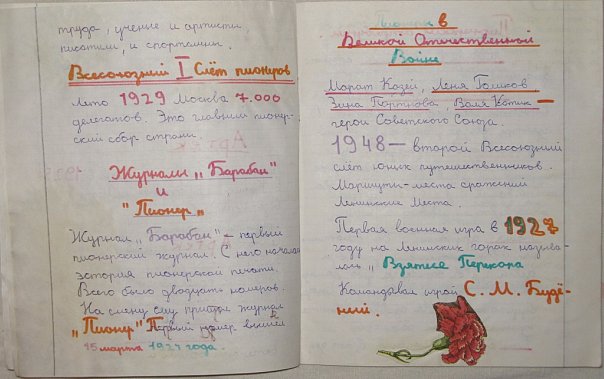 труда, учение и артисты,
писатели, и спортсмены.
Всесоюзний I Слёт пионеров
Лето 1929 Москва 7.000
делегатов. Это главним пионер-
ский сбор страны.
Журнали „Барабан"
и
"Пионер„
Журнал „Барабан" – первый
пионерский журнал. С него началас
эстория пионерской печати.
Всего было двадцать номеров.
На смену ему пришол журнал
„Пионер" Первый номер вышел
15 марта 1924 года.
Пионеры в
Великой Отечественный
Войне
Марат Козей, Леня Голиков
Зина Портнова Валя Котик –
герои Советского Союза.
1948 – второй Всесоюзний
слёт юних путешественников.
Маршути-места сражений
Ленинские места.
Первая военная игра в 1927
году на Ленинских горах назива-
лась „Взятее Перекора
Командовал игрой С. М. Будё-
ний.